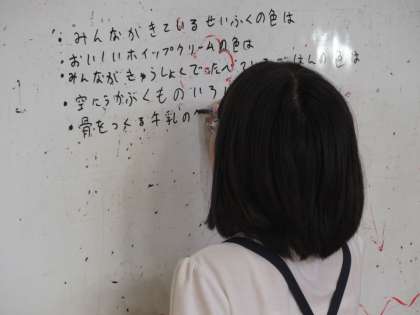 ・みんながきているせいふくの色は
・おいしいホイップクリームの色は
・みんながきゅうしょくでたべているごはんの色は
・空にうかぶくものいろ
・骨をつくる牛乳の